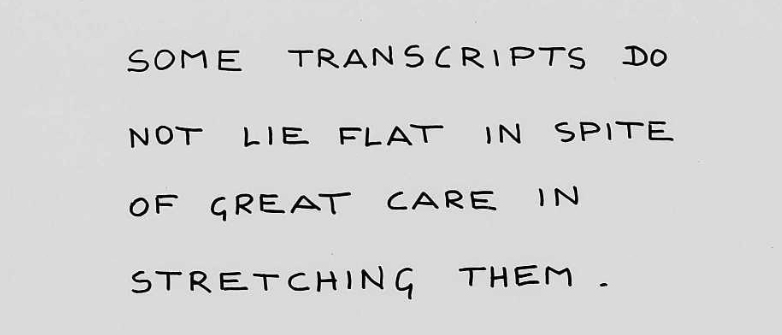 SOME TRANSCRIPTS DO
NOT LIE FLAT IN SPITE
OF GREAT CARE IN
STRETCHING THEM.